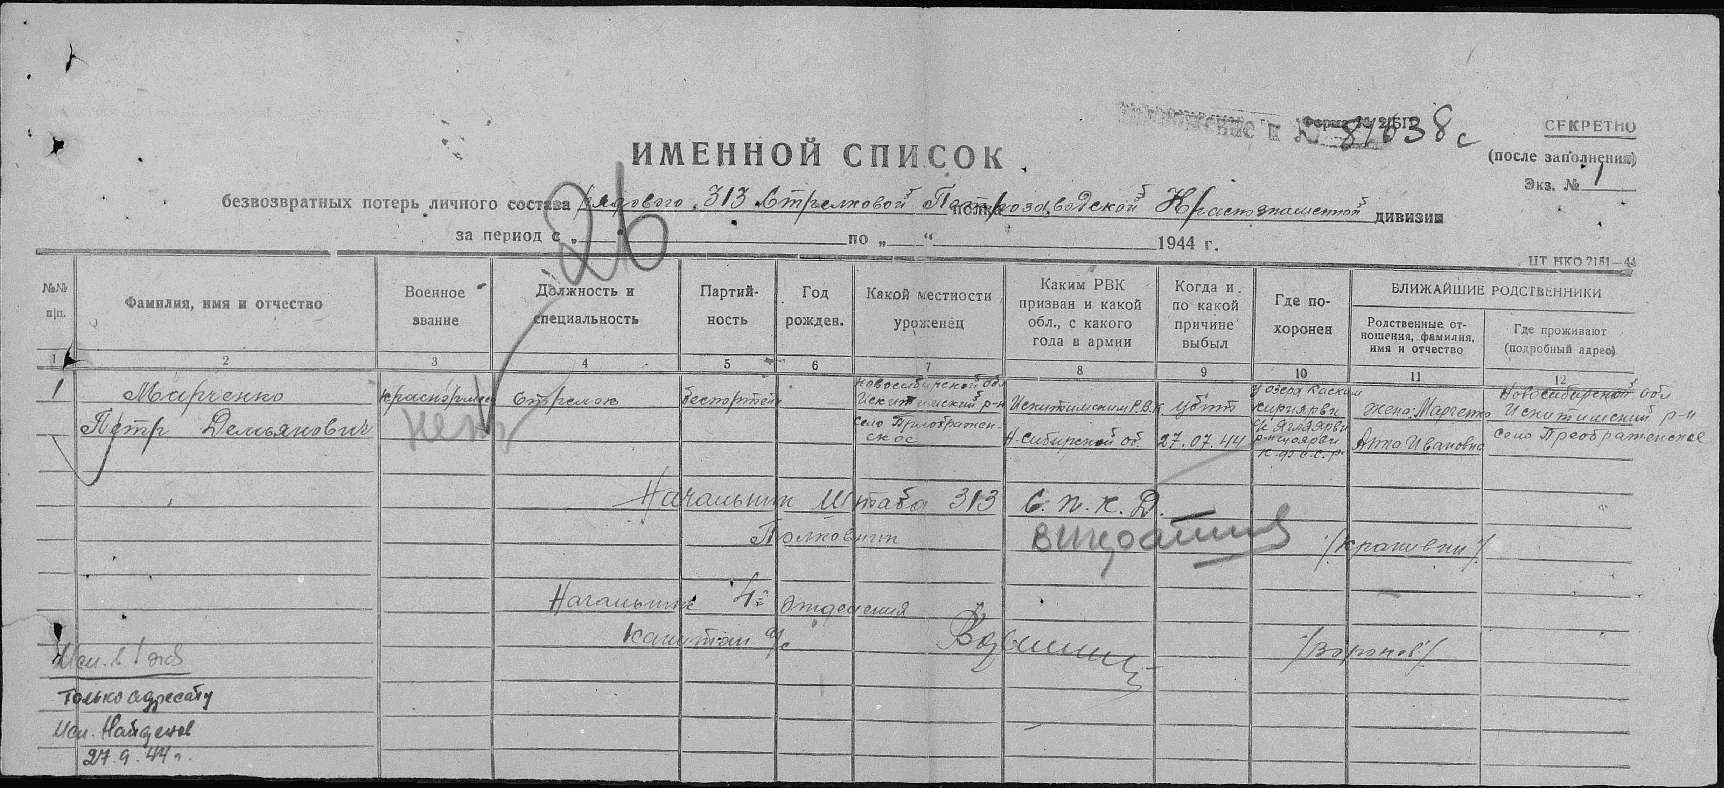 Форма № 2/БП
81038с
СЕКРЕТНО
(после заполнения)
Экз. № 1
ИМЕННОЙ СПИСОК
безвозвратных потерь личного состава рядового 313 Стрелковой полка Петрозаводской Краснознаменной дивизии
за период с „ по „ “ 1944 г.
26
ЦТ НКО 7151—44
№№ п|п.
Фамилия, имя и отчество
Военное звание
Должность и специальность
Партий-
ность
Год рожден.
Какой местности уроженец
Каким РВК
призван и какой
обл., с какого
года в армии
Когда и
по какой
причине
выбыл
Где по-
хоронен
БЛИЖАЙШИЕ РОДСТВЕННИКИ
Родственные от-
ношения, фамилия,
имя и отчество
Где проживают
(подробный адрес)
1 2 3 4 5 6 7 8 9 10 11 12
1
Марченко
Петр Демьянович
красноармеец
нет
Стрелок
беспартейн
Новосибирской обл
Искитимский р-н
село Преображен-
ское
Искитимским Р.В.К
Н-Сибирской об
убит
27.07.44
у озера
Жена: Марченко
Анна Ивановна
Новосибирской обл
Искитимский р-н
село Преображенское
Начальник Штаба 313 С.П.К.Д.
Полковник /Крапивин/
Начальник 4го отделения
Капитан а/с /Воронов/
Исп. в 1 экз
Только адресату
Исп. Найденов
27.9.44 г.